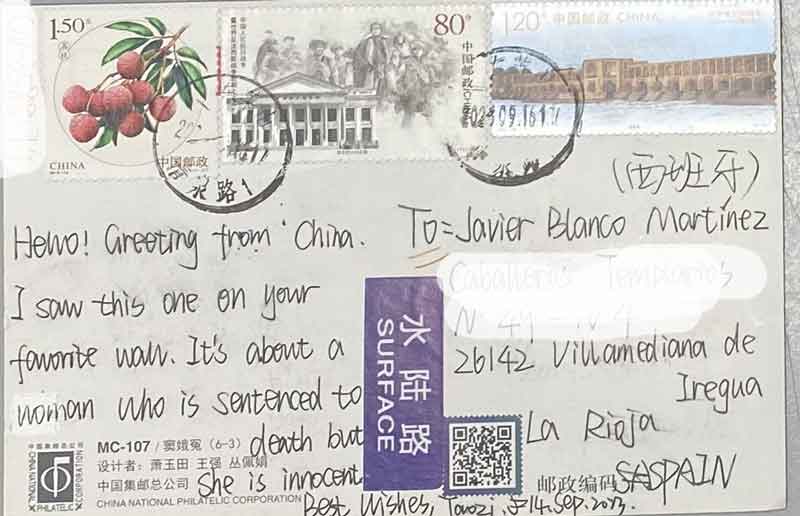 1.50元
CHINA
中国邮政
80分
中国邮政
1.20元
中国邮政 CHINA
2023.09.16.17
水路1
(西班牙)
Hello! Greeting from China.
I saw this one on your
favorite wall. It's about a
woman who is sentenced to
death but
she is innocent
Best Wishes,
14. Sep. 2023.
To: Javier Blanco Martínez
Caballeros Templarios
26142 Villamediana de
Iregua
La Rioja
SPAIN
水陆路
SURFACE
中国集邮总公司
CHINA NATIONAL
PHILATELIC CORPORATION
MC-107 / 窦娥冤 (6-3)
设计者: 萧玉田 王强 丛佩娟
中国集邮总公司
CHINA NATIONAL PHILATELIC CORPORATION
邮政编码